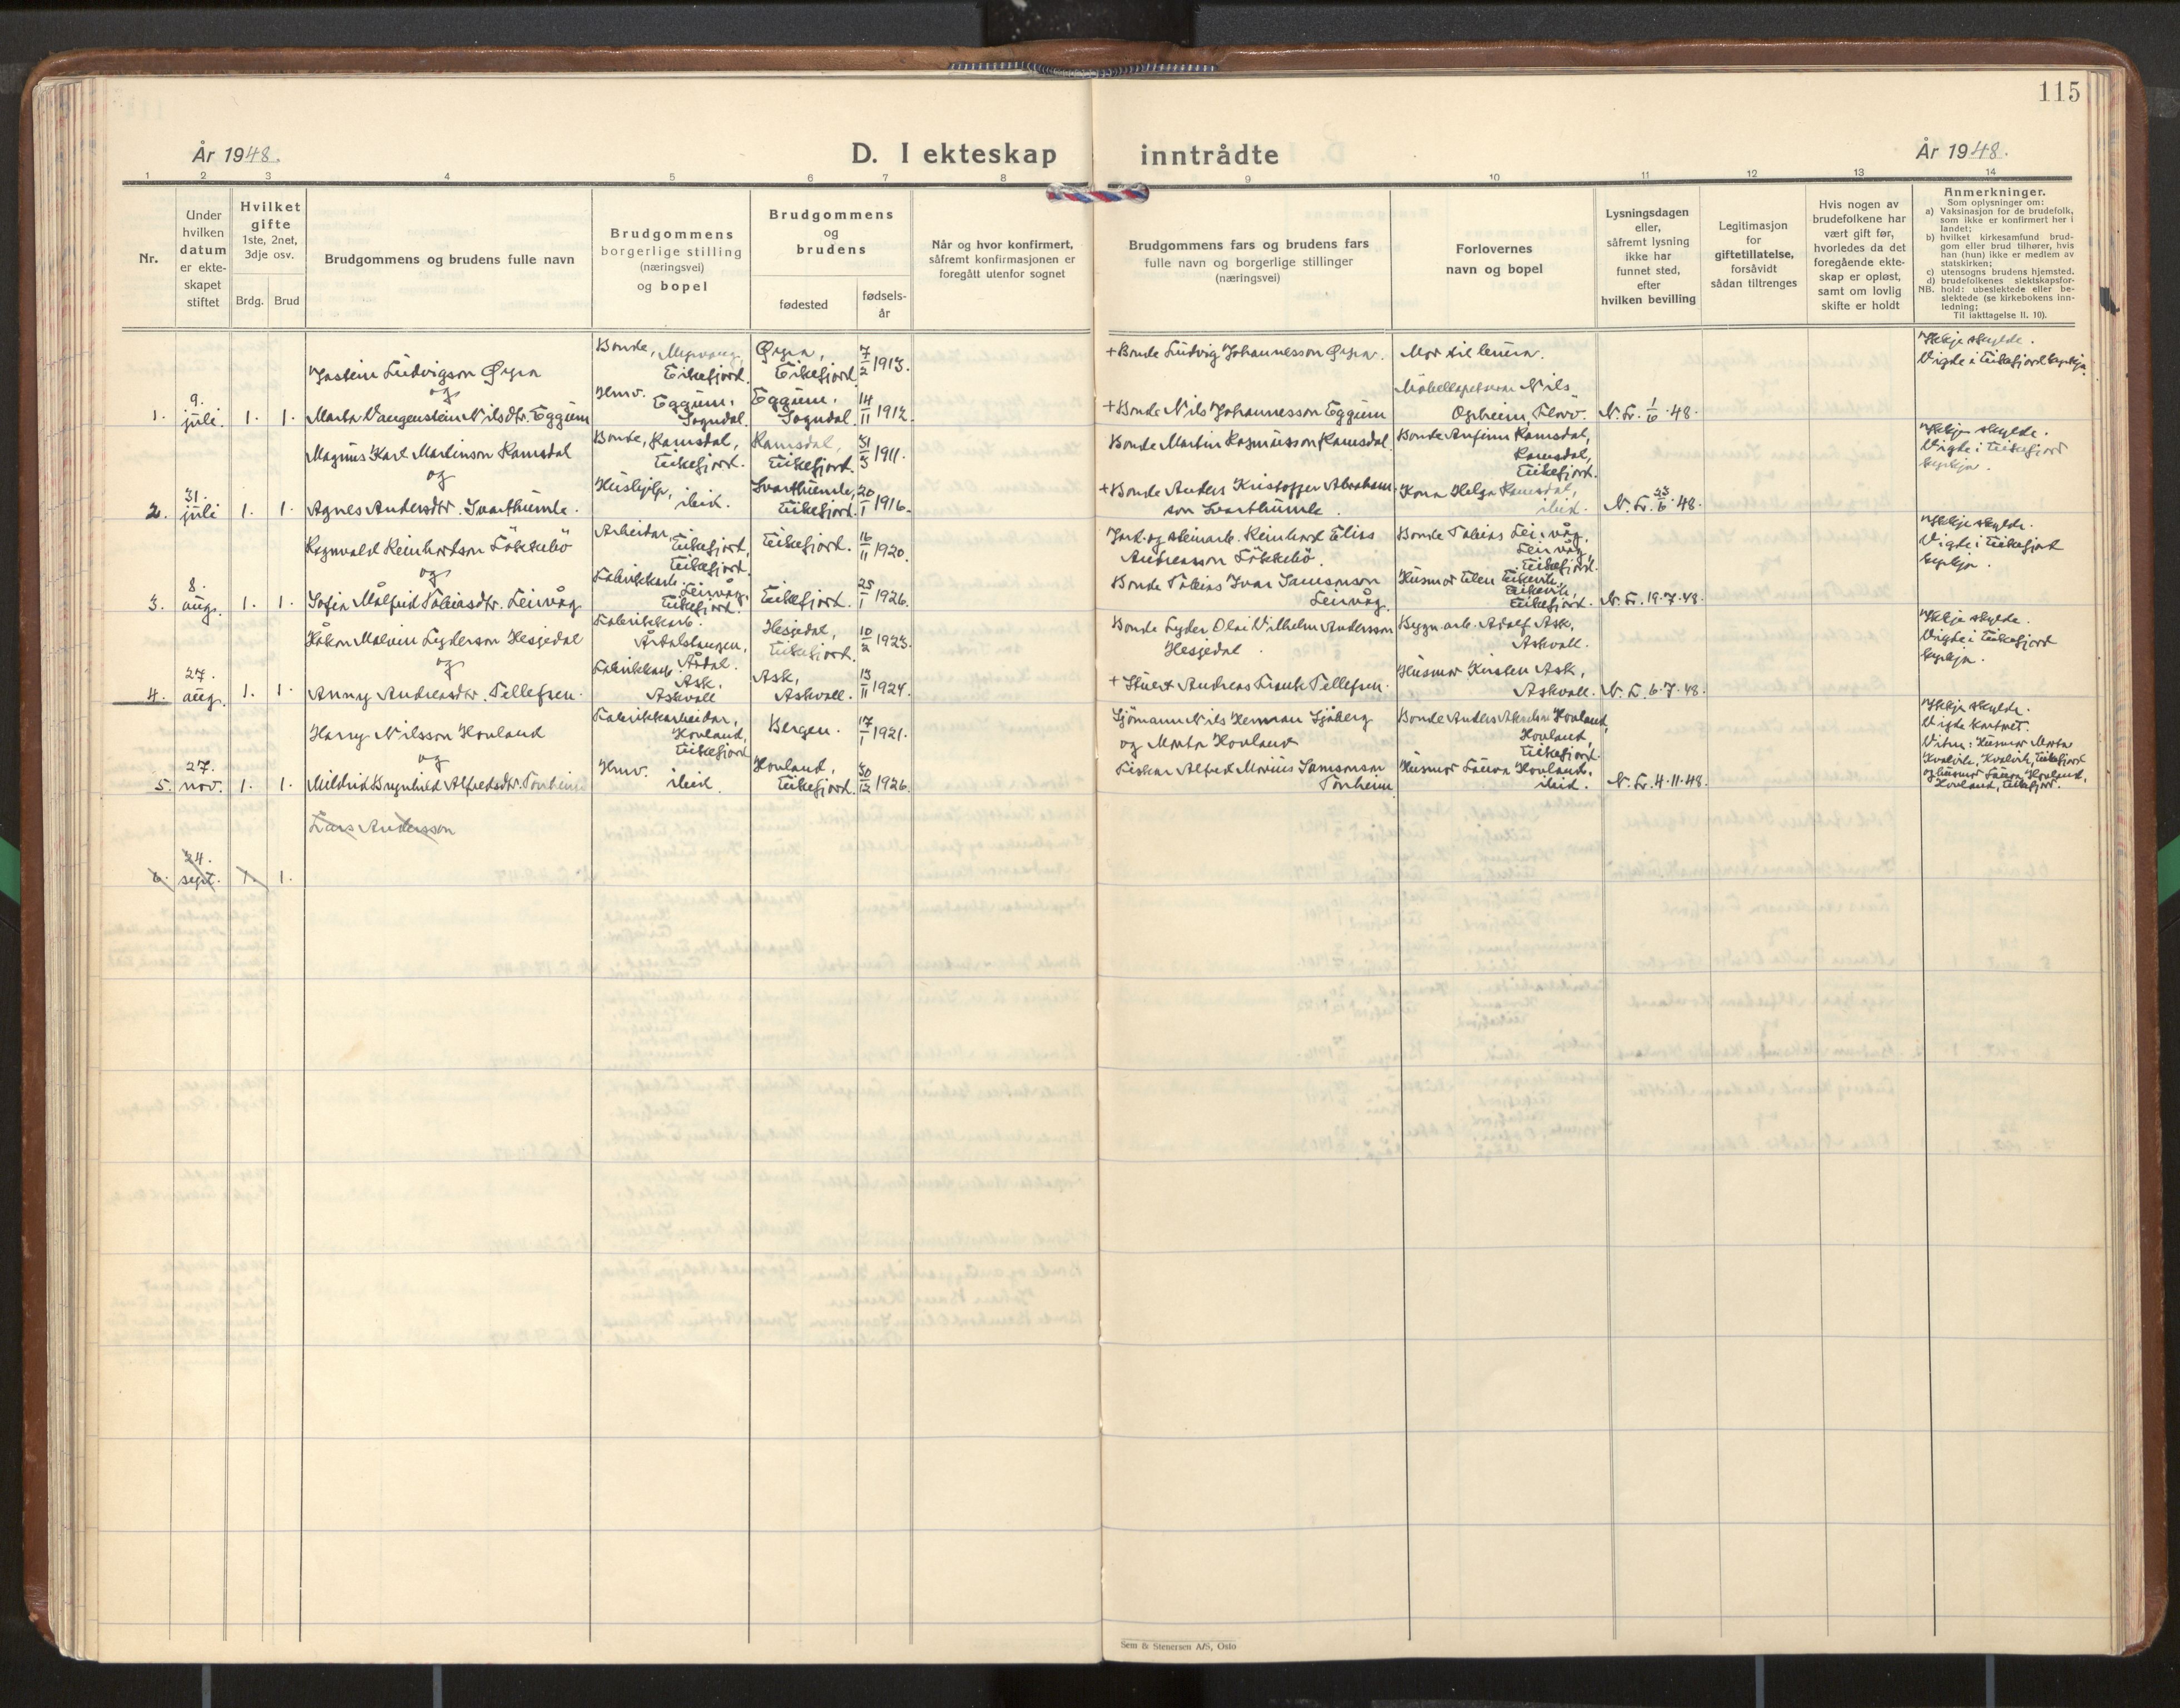 115
År 1948.
D. I ekteskap inntrådte
År 1948.
1 2 3 4 5 6 7 8 9 10 11 12 13 14
Nr.
Under
hvilken
datum
er ekte-
skapet
stiftet
Hvilket
gifte
1ste, 2net,
3dje osv.
Brdg. Brud
Brudgommens og brudens fulle navn
Brudgommens
borgerlige stilling
(næringsvei)
og bopel
Brudgommens
og
brudens
fødested
fødsels-
år
Når og hvor konfirmert,
såfremt konfirmasjonen er
foregått utenfor sognet
Brudgommens fars og brudens fars
fulle navn og borgerlige stillinger
(næringsvei)
Forlovernes
navn og bopel
Lysningsdagen
eller,
såfremt lysning
ikke har
funnet sted,
efter
hvilken bevilling
Legitimasjon
for
giftetillatelse,
forsåvidt
sådan tiltrenges
Hvis nogen av
brudefolkene har
vært gift før,
hvorledes da det
foregående ekte-
skap er opløst,
samt om lovlig
skifte er holdt
Anmerkninger.
Som oplysninger om:
a) Vaksinasjon for de brudefolk,
som ikke er konfirmert her i
landet;
b) hvilket kirkesamfund brud-
gom eller brud tilhører, hvis
han (hun) ikke er medlem av
statskirken;
c) utensogns brudens hjemsted.
d) brudefolkenes slektskapsfor-
NB. hold: ubeslektede eller be-
slektede (se kirkebokens inn-
ledning;
Til iakttagelse II. 10).
1.
9.
juli.
1. 1.
Jostein Ludvigson Øyra
og
Marta Vangenstein Nilsdtr. Eggum
Bonde,
Eikefjord.
Hmv.
Eggum,
Sogndal.
Øyra,
Eikefjord.
7/2 1913.
Eggum,
Sogndal.
14/11 1912.
+ Bonde Ludvig Johannesson Øyra.
+ Bonde Nils Johannesson Eggum
Mor til
Nils
Opheim, Florø.
N. Fr. 1/6 · 48.
Ikkje skylde.
Vigde i Eikefjord kyrkja.
2.
31.
juli
1. 1.
Magnus Karl Martinson Ramsdal
og
Agnes Andersdtr. Svarthumle.
Bonde, Ramsdal,
Eikefjord.
Hushjelp,
ibid.
Ramsdal,
Eikefjord.
31/3 1911.
Svarthumle,
Eikefjord.
20/1 1916.
Bonde Martin Rasmusson Ramsdal
+ Bonde Anders Kristoffer Abraham-
son Svarthumle.
Bonde Anfinn Ramsdal,
Ramsdal,
Eikefjord.
Kona Helga Ramsdal,
ibid.
N. Fr. 23/6 · 48.
Ikkje skylde.
Vigde i Eikefjord
kyrkja.
3.
8.
aug.
1. 1.
Ragnvald Reinhardson Løkkebø
og
Sofia Målfrid Tobiasdtr. Leirvåg
Arbeidar,
Eikefjord,
Eikefjord.
Fabrikkarb.
Leirvåg,
Eikefjord.
Eikefjord.
16/11 1920.
Eikefjord.
25/1 1926.
Jord- og steinarb. Reinhard Elias
Andreasson Løkkebø.
Bonde Tobias Ivar Samsonson
Leirvåg
Bonde Tobias Leirvåg,
Leirvåg,
Eikefjord.
Husmor Elen Eikevik,
Eikevik,
Eikefjord.
N. Fr. 19·7·48.
Ikkje skylde.
Vigde i Eikefjord
kyrkja.
4.
27.
aug.
1. 1.
Håkon Malvin Lyderson Hesjedal
og
Anny Andreasdtr. Tellefsen.
Fabrikkarb.
Årdalstangen,
Årdal.
Fabrikkarb.
Ask,
Askvoll
Hesjedal,
Eikefjord.
10/2 1923.
Ask,
Askvoll.
13/11 1924.
Bonde Lyder Olai Vilhelm Andersson
Hesjedal.
+ Stuert Andreas Frank Tellefsen.
Bygn. arb. Adolf Ask,
Askvoll.
Husmor Kirsten Ask,
Askvoll.
N. F. 6·7·48.
Ikkje skylde.
Vigde i Eikefjord
kyrkja.
5.
27.
nov.
1. 1.
Harry Nilsson Hovland
og
Mildrid Brynhild Alfredsdtr. Tonheim
Fabrikkarbeidar,
Hovland,
Eikefjord
Hmv.
ibid.
Bergen.
17/1 1921.
Hovland,
Eikefjord.
30/12 1926.
Sjømann Nils Herman Sjøberg
og Marta Hovland
Fiskar Alfred Marius Samsonson
Tonheim
Bonde Anders Hovland,
Hovland,
Eikefjord.
Husmor Laura Hovland,
ibid.
N. Fr. 4·11·48.
Ikkje skylde.
Vigde kontoret.
Vitne: Husmor Marta
Kvalvik, Kvalvik, Eikefjord
og husmor Laura Hovland,
Hovland, Eikefjord.
6.
24.
sept.
1. 1.
Lars Andersson
Sem & Stenersen A/S, Oslo